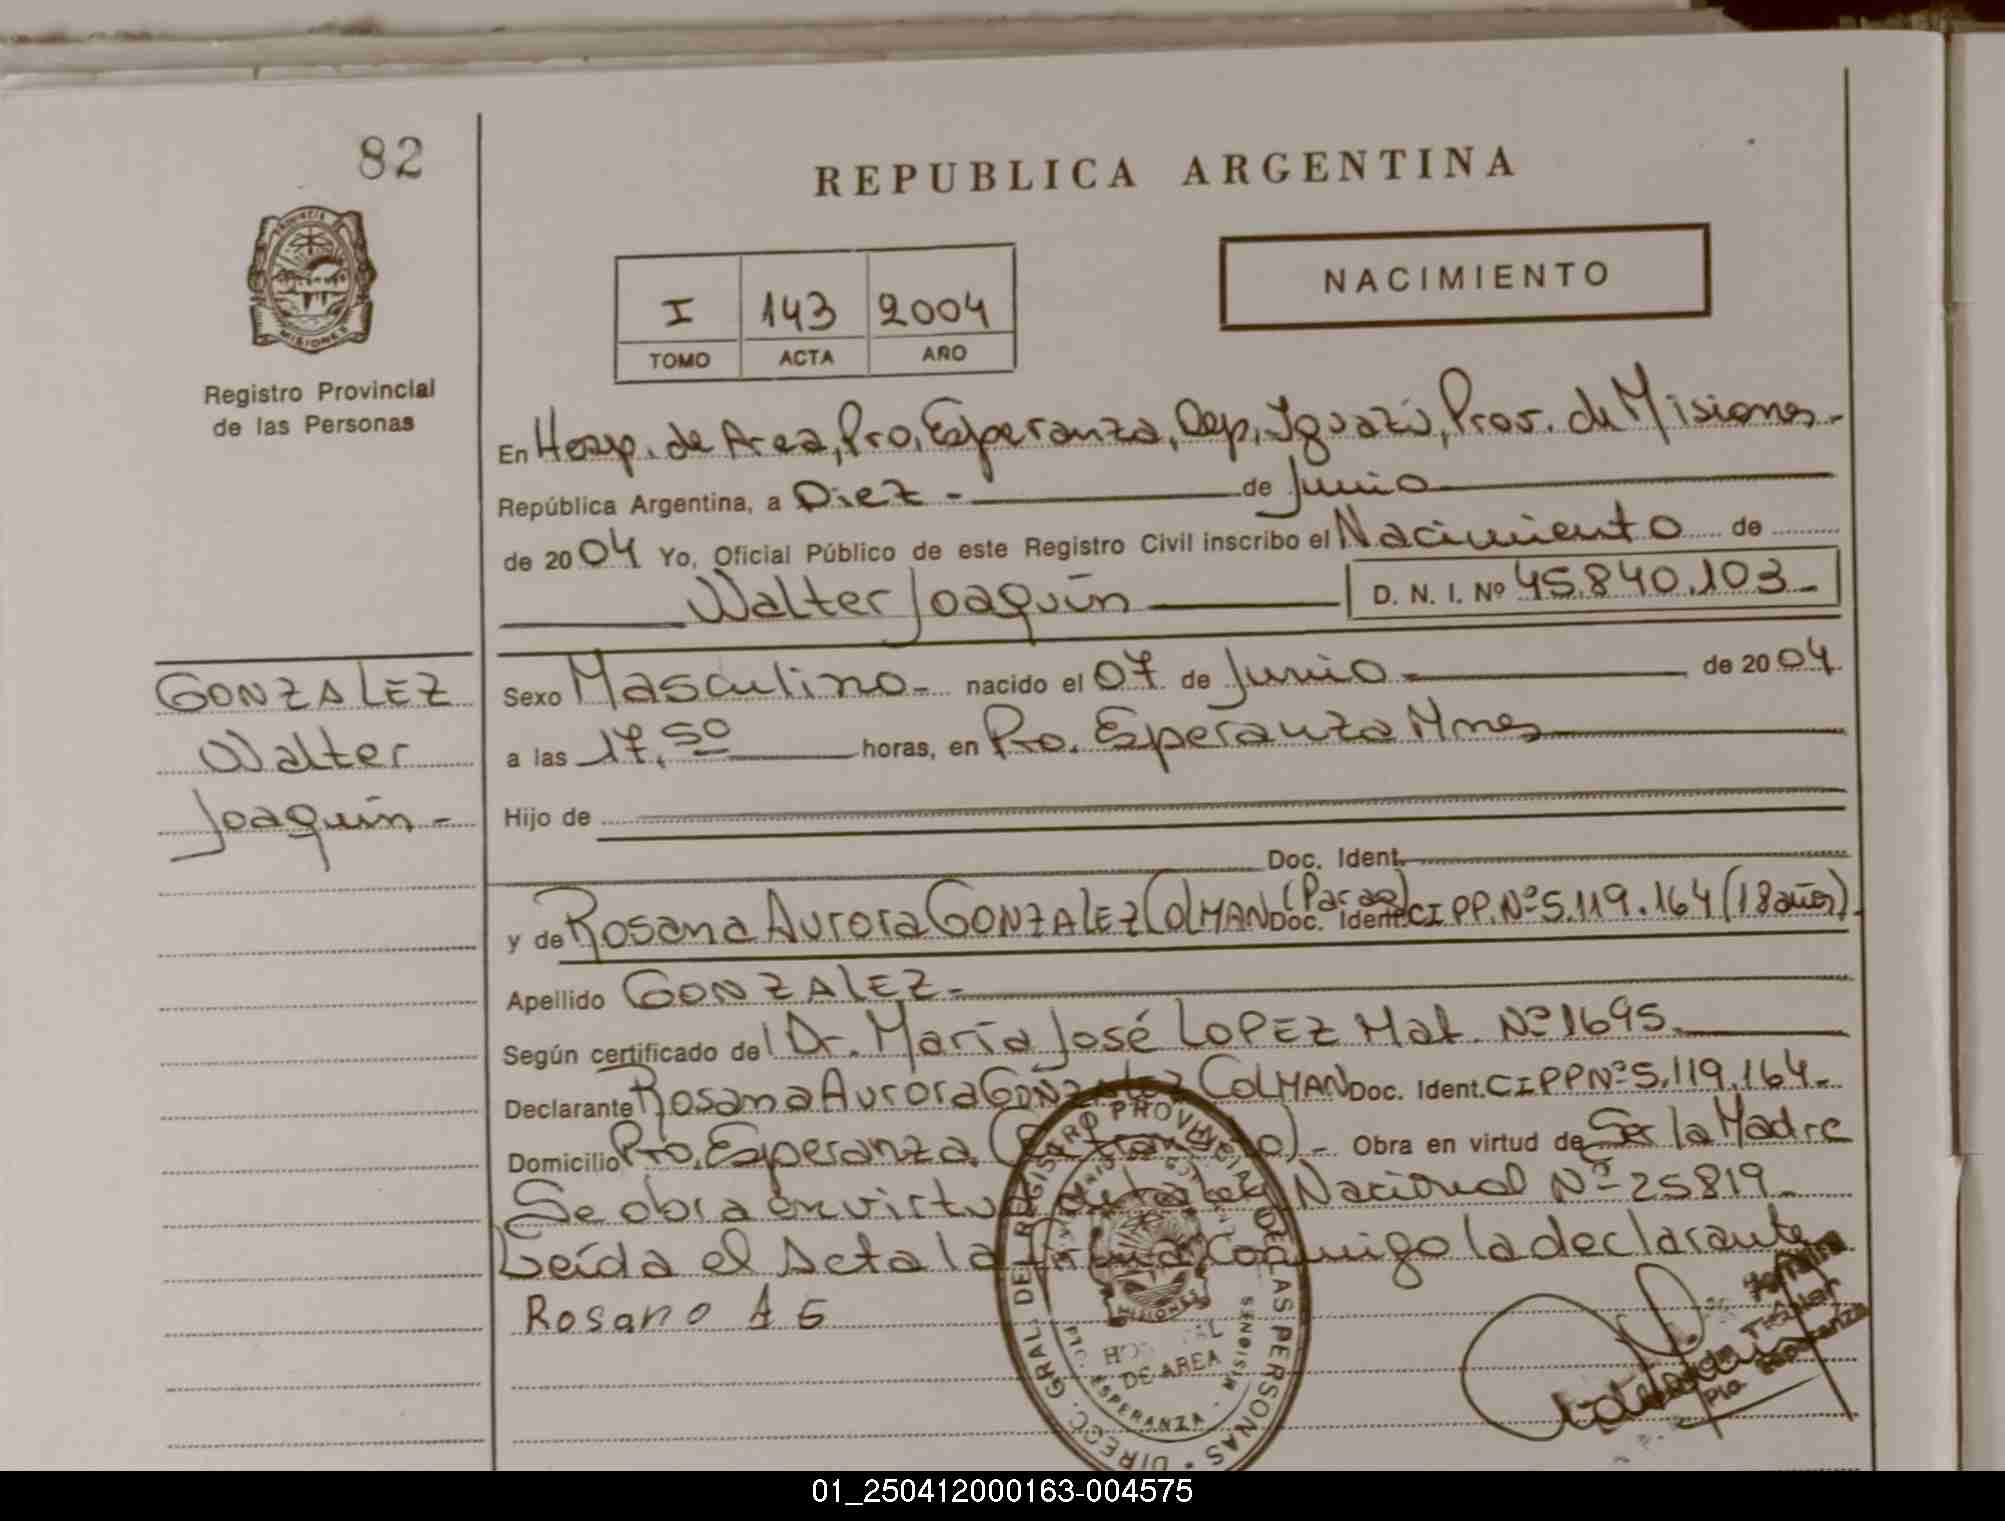 82
REPUBLICA ARGENTINA
NACIMIENTO
PROVINCIA
MISIONES
Registro Provincial
de las Personas
I 143 2004
TOMO ACTA AÑO
En Hosp. de Area, Pto, Esperanza, Dep, Iguazú, Prov. de Misiones.
República Argentina, a Diez - de Junio
de 2004 Yo, Oficial Público de este Registro Civil inscribo el Nacimiento de
Walter Joaquín D. N. I. Nº 45.840.103-
GONZALEZ
Walter
Joaquín -
Sexo Masculino - nacido el 07 de Junio de 2004
a las 17,50 horas, en Pto. Esperanza Mnes
Hijo de
Doc. Ident.
y de Rosana Aurora GONZALEZ COLMAN (Parag) Doc. Ident. CI PP. Nº 5.119.164 (18 años).
Apellido GONZALEZ -
Según certificado del Dr. María José LOPEZ Mat. Nº 1695.
Declarante Rosana Aurora GONZALEZ COLMAN Doc. Ident. CI PP Nº 5.119.164-
Domicilio Pto. Esperanza Obra en virtud de Ser la Madre
Se obra en virtud de la Ley Nacional Nº 25819-
Leída el Acta la firma conmigo la declarante
Rosano A G
DIREC. GRAL. DEL REGISTRO PROVINCIAL DE LAS PERSONAS
MISIONES
DE AREA
ESPERANZA - MISIONES
Esperanza
01_250412000163-004575